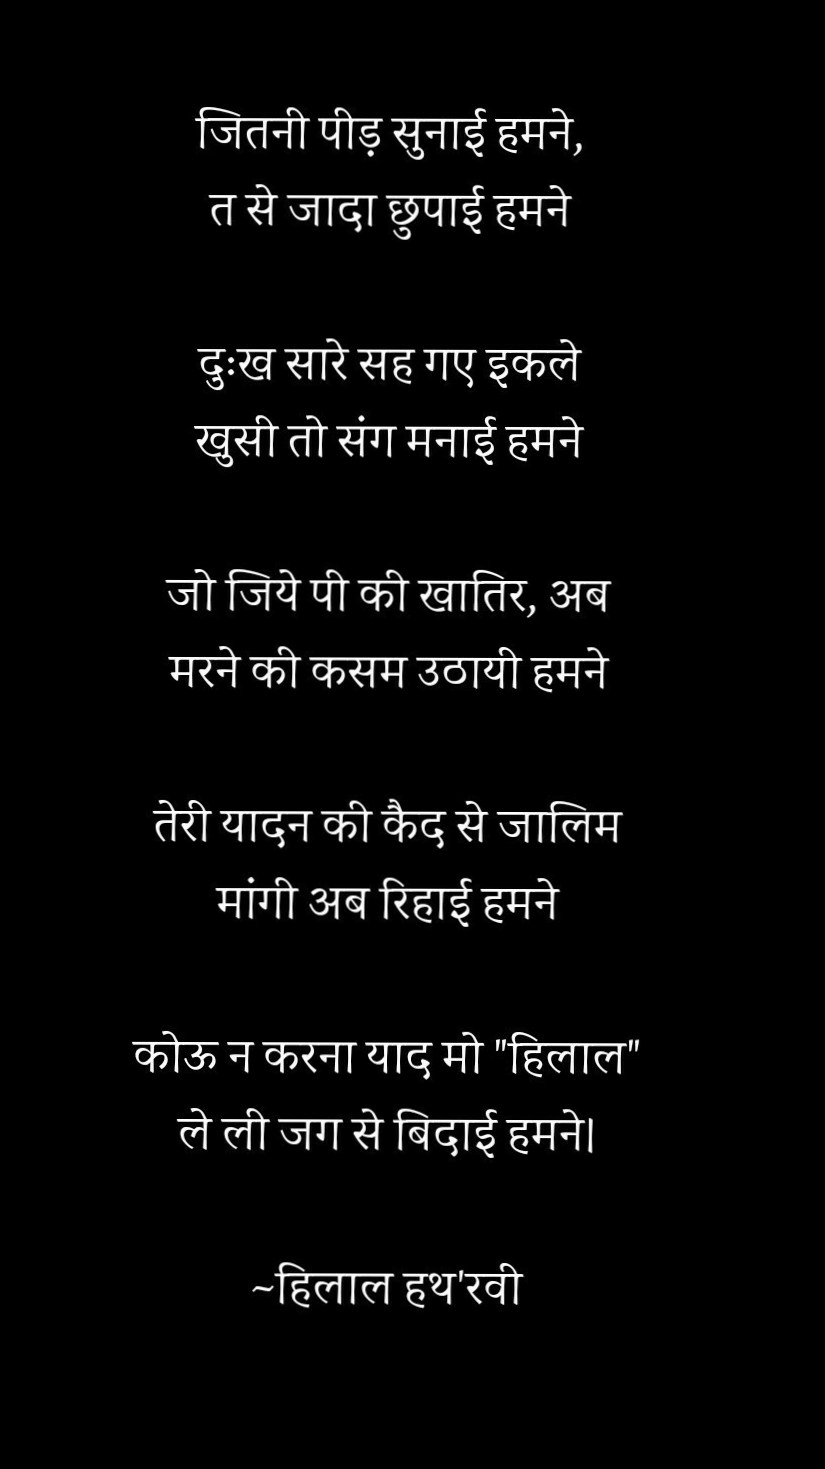 जितनी पीड़ सुनाई हमने,
त से जादा छुपाई हमने
दुःख सारे सह गए इकले
खुसी तो संग मनाई हमने
जो जिये पी की खातिर, अब
मरने की कसम उठायी हमने
तेरी यादन की कैद से जालिम
मांगी अब रिहाई हमने
कोऊ न करना याद मो "हिलाल"
ले ली जग से बिदाई हमने।
~हिलाल हथ'रवी